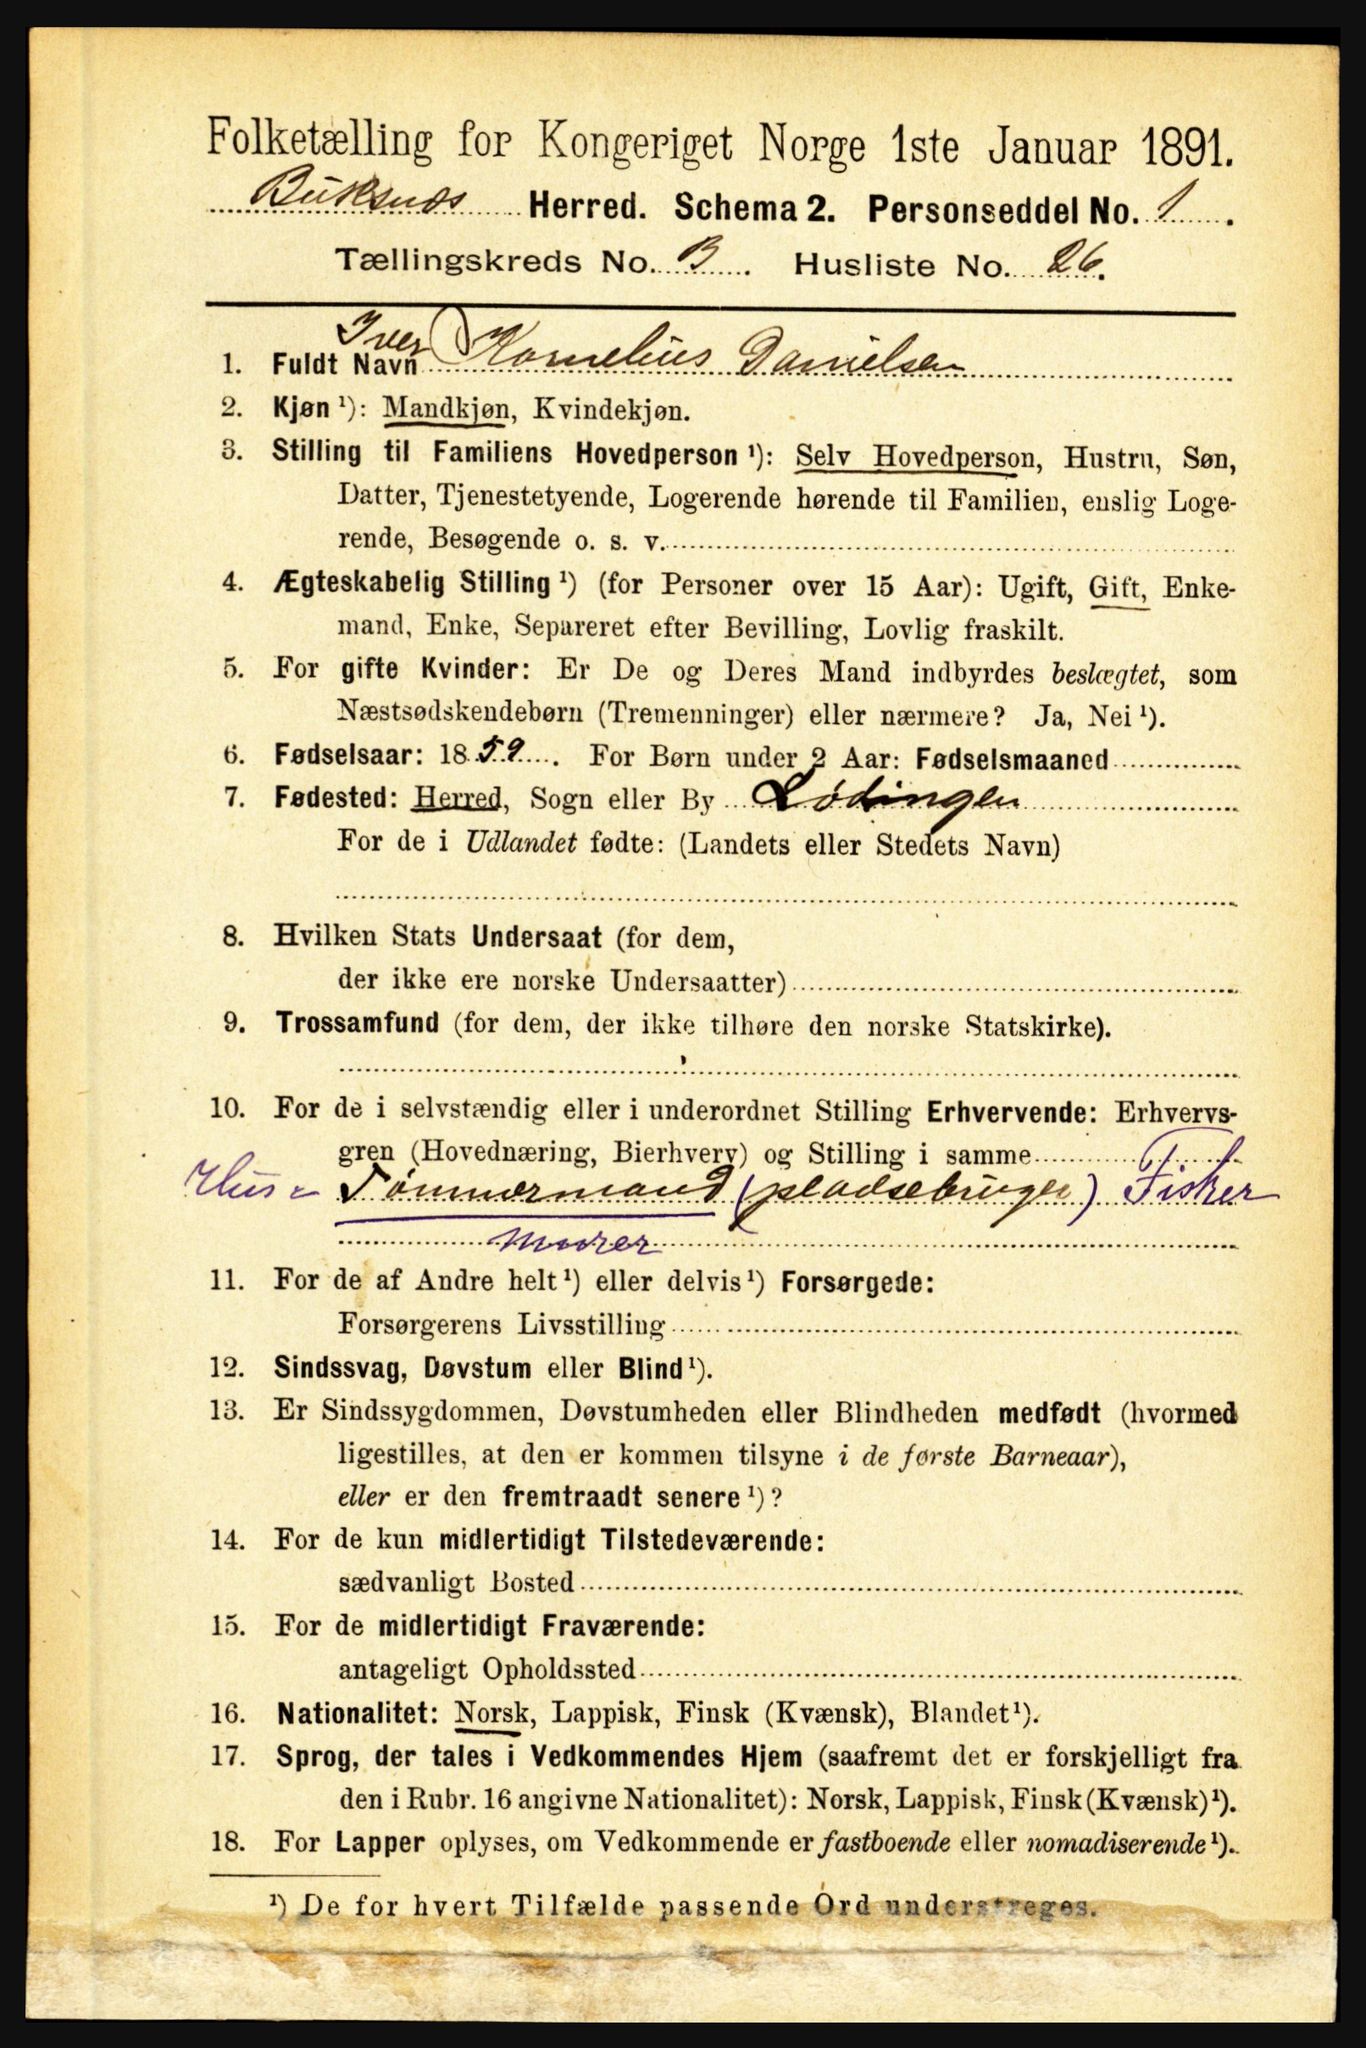 Folketælling for Kongeriget Norge 1ste Januar 1891.
Buksnes Herred. Schema 2. Personseddel No. 1.
Tællingskreds No. B. Husliste No. 26.
Iver
1. Fuldt Navn Kornelius Danielsen
2. Kjøn ¹): Mandkjøn, Kvindekjøn.
3. Stilling til Familiens Hovedperson ¹): Selv Hovedperson, Hustru, Søn,
Datter, Tjenestetyende, Logerende hørende til Familien, enslig Loge-
rende, Besøgende o. s. v.
4. Ægteskabelig Stilling ¹) (for Personer over 15 Aar): Ugift, Gift, Enke-
mand, Enke, Separeret efter Bevilling, Lovlig fraskilt.
5. For gifte Kvinder: Er De og Deres Mand indbyrdes beslægtet, som
Næstsødskendebørn (Tremenninger) eller nærmere? Ja, Nei ¹).
6. Fødselsaar: 1859. For Børn under 2 Aar: Fødselsmaaned
7. Fødested: Herred, Sogn eller By Lødingen
For de i Udlandet fødte: (Landets eller Stedets Navn)
8. Hvilken Stats Undersaat (for dem,
der ikke ere norske Undersaatter)
9. Trossamfund (for dem, der ikke tilhøre den norske Statskirke).
10. For de i selvstændig eller i underordnet Stilling Erhvervende: Erhvervs-
gren (Hovednæring, Bierhverv) og Stilling i samme
Hus= Tømmermand (pladsebruger) Fisker
Murer
11. For de af Andre helt ¹) eller delvis ¹) Forsørgede:
Forsørgerens Livsstilling
12. Sindssvag, Døvstum eller Blind ¹).
13. Er Sindssygdommen, Døvstumheden eller Blindheden medfødt (hvormed
ligestilles, at den er kommen tilsyne i de første Barneaar),
eller er den fremtraadt senere ¹)?
14. For de kun midlertidigt Tilstedeværende:
sædvanligt Bosted
15. For de midlertidigt Fraværende:
antageligt Opholdssted
16. Nationalitet: Norsk, Lappisk, Finsk (Kvænsk), Blandet ¹).
17. Sprog, der tales i Vedkommendes Hjem (saafremt det er forskjelligt fra
den i Rubr. 16 angivne Nationalitet): Norsk, Lappisk, Finsk (Kvænsk) ¹).
18. For Lapper oplyses, om Vedkommende er fastboende eller nomadiserende ¹).
¹) De for hvert Tilfælde passende Ord understreges.